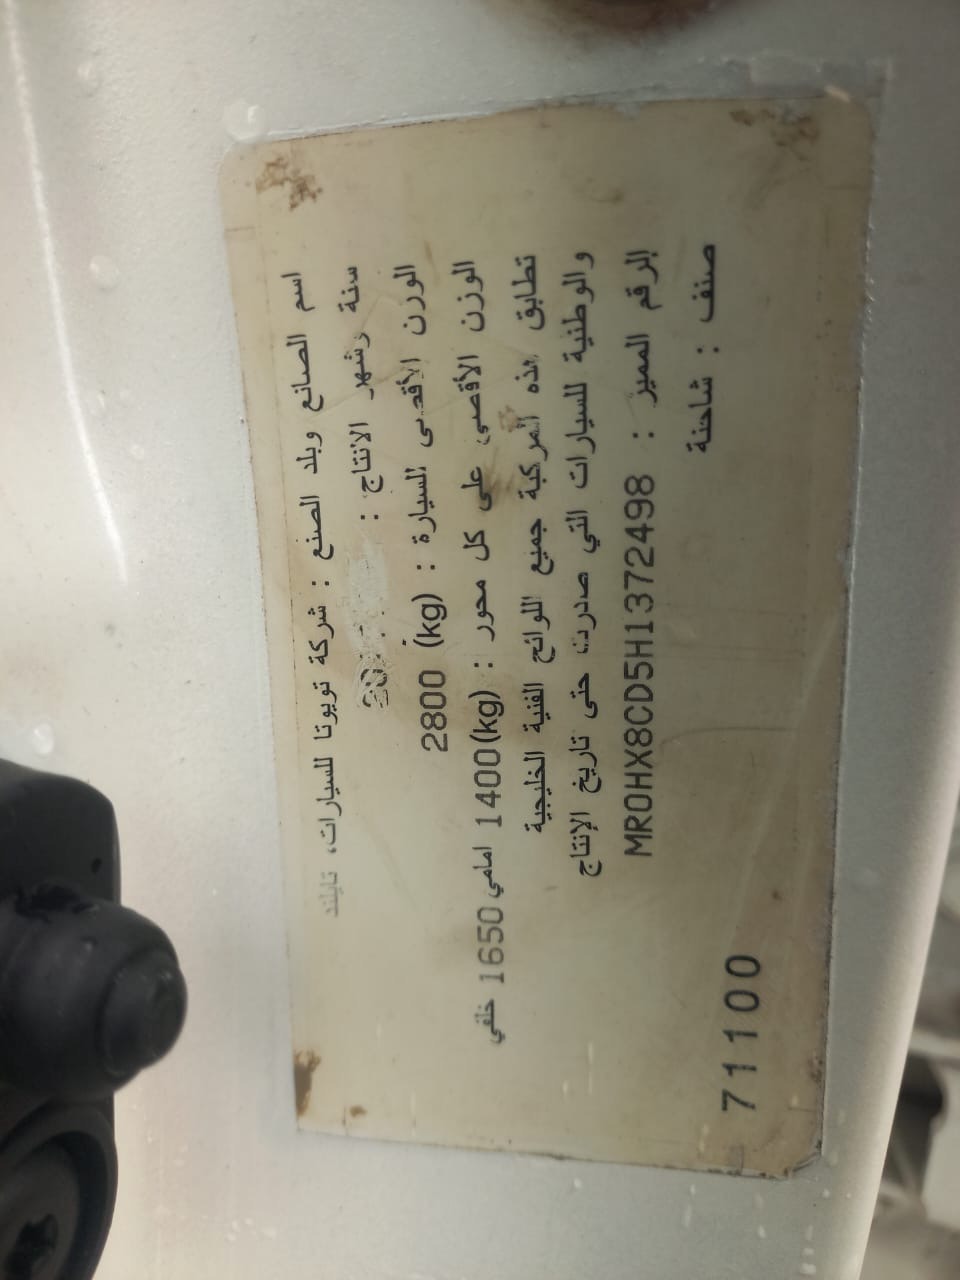 اسم الصانع وبلد الصنع : شركة تويوتا للسيارات، تايلند
سنة وشهر الانتاج :
الوزن الأقصى للسيارة : (kg) 2800
الوزن الأقصى على كل محور : (kg)1400 امامي 1650 خلفي
تطابق هذه المركبة جميع اللوائح الفنية الخليجية
والوطنية للسيارات التي صدرت حتى تاريخ الإنتاج
الرقم المميز : MR0HX8CD5H1372498
صنف : شاحنة
71100